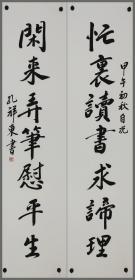 忙裏讀書求諦理
甲午初秋自況
閑来弄筆慰平生
孔祥東書